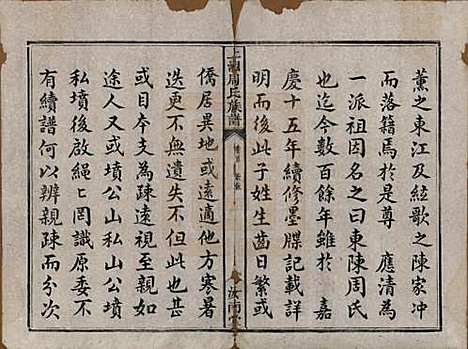 薰之東江及絃歌之陳家冲
而落籍焉於是尊 應清為
一派祖因名之曰東陳周氏
也迄今數百餘年雖於 嘉
慶十五年續修墨牒記載詳
明而後此子姓生齒日繁或
上湘周氏族譜
汝南堂
僑居異地或遠適他方寒暑
迭更不無遺失不但此也甚
或目本支為疎遠視至親如
途人又或墳公山私山公墳
私墳後啟繩繩罔識原委不
有續譜何以辨親疎而分次